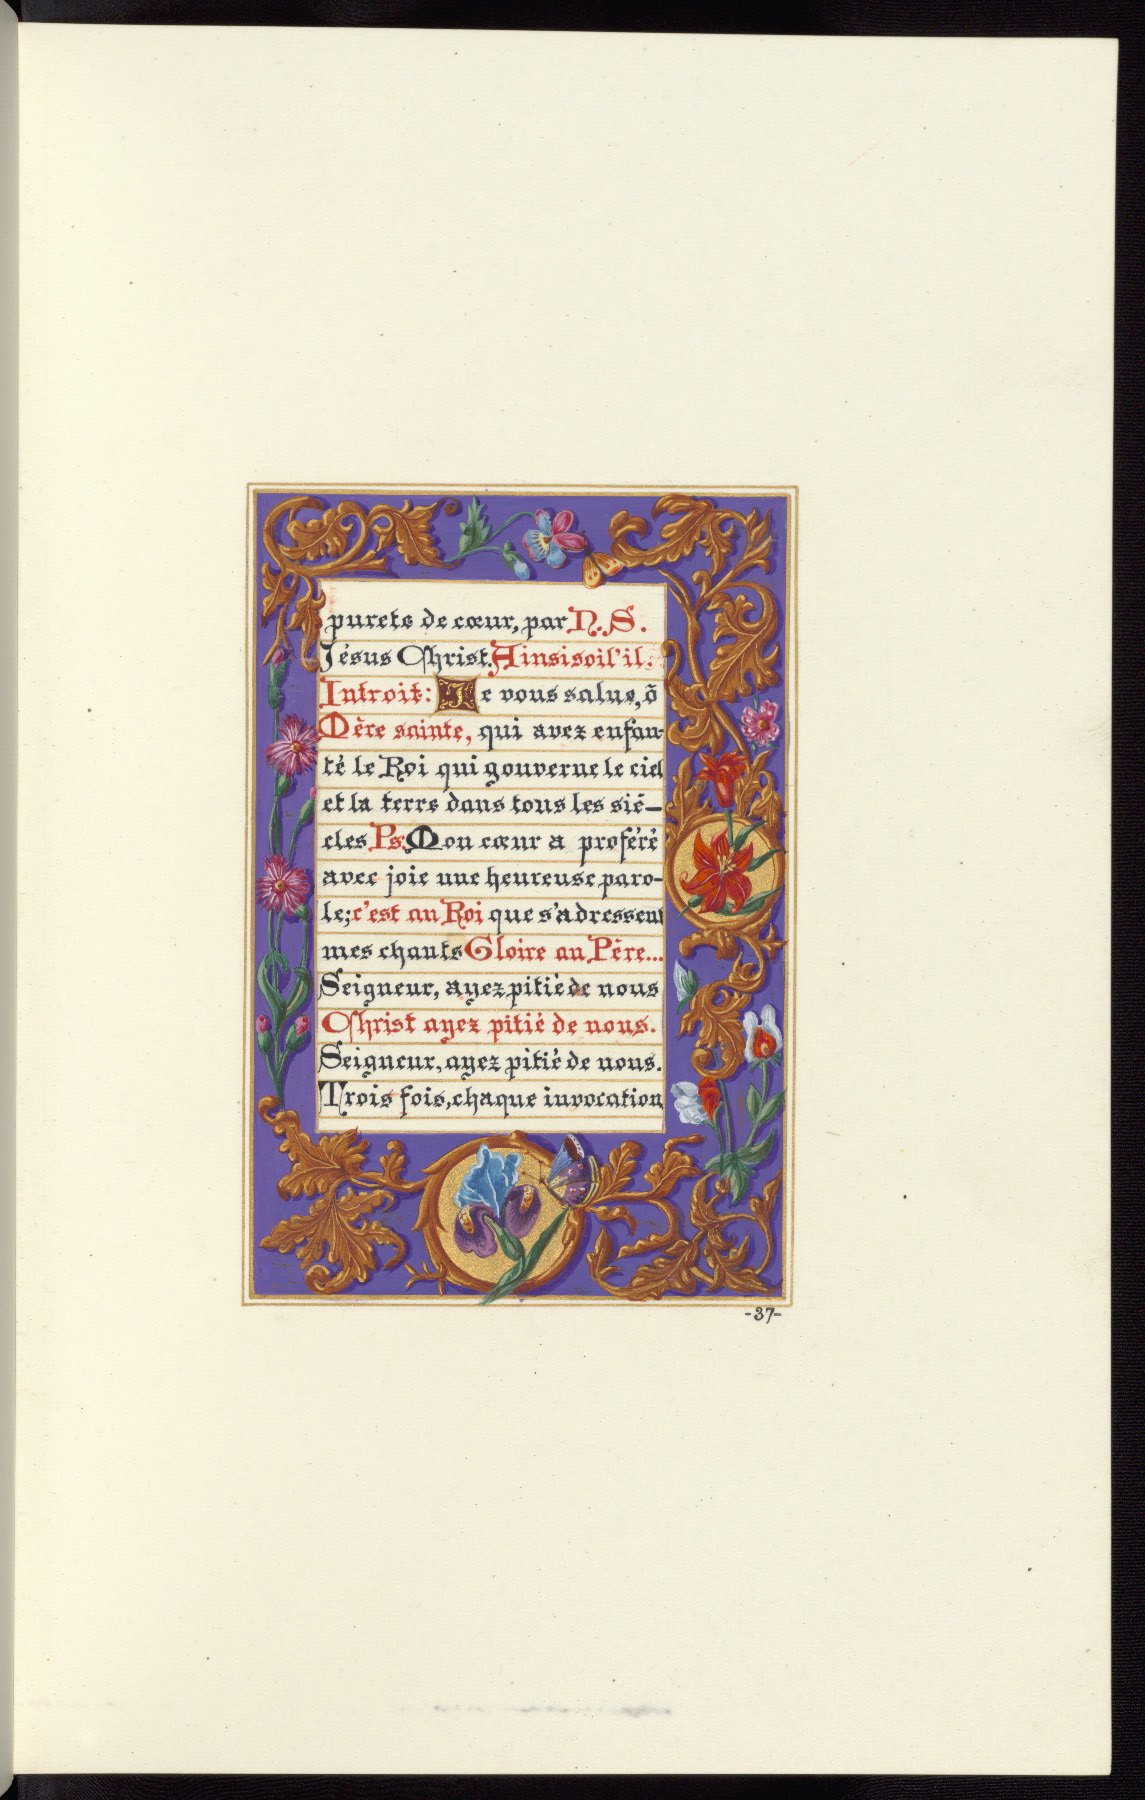 pureté de cœur, par N. S.
Jésus Christ. Ainsi soit'il.
Introit: Je vous salue, ô
Mère sainte, qui avez enfan-
té le Roi qui gouverne le ciel
et la terre dans tous les siè-
cles Ps. Mon cœur a proféré
avec joie une heureuse paro-
le; c'est au Roi que s'adressent
mes chants Gloire au Père...
Seigneur, ayez pitié de nous
Christ ayez pitié de nous.
Seigneur, ayez pitié de nous.
Trois fois, chaque invocation
-37-